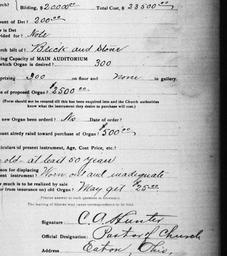 Bilding, $20000.00 Total Cost, $23500.00
unt of Debt? 200.00
is Debt
vided for? Note
rch bilt of? Brick and Stone
ing Capacity of MAIN AUDITORIUM
which Organ is desired? 300
prising 300 on floor and None in gallery.
of proposed Organ? $2500.00
(Form should not be returned till this has been inquired into and the Church authorities
know what the instrument they desire to purchase will cost.)
new Organ been ordered? No Date of order?
ount already raised toward purchase of Organ? $500.00
ticulars of present instrument, Age, Cost Price, etc.
old - at least 50 years
son for displacing
sent instrument? Worn out and inadequate
much is to be realized by sale
or from insurance on) old Organ? May get $25.00
Please answer each question
Signature C A Hunter
Official Designation: Pastor of Church
Eaton, Ohio,